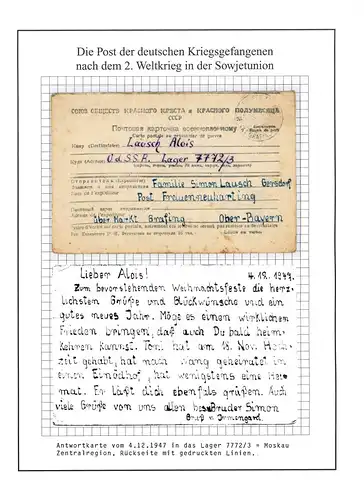 Die Post der deutschen Kriegsgefangenen
nach dem 2. Weltkrieg in der Sowjetunion
СОЮЗ ОБЩЕСТВ КРАСНОГО КРЕСТА и КРАСНОГО ПОЛУМЕСЯЦА
СССР
Почтовая карточка военнопленному
Carte postale au prisonnier de guerre
Кому (Destinataire) Lausch Alois
Куда (Adresse) U.d.S.S.R. Lager 7772/3
Отправитель (Expéditeur)
Familie Simon Lausch Gersdorf
Post Frauenneuharting
über Markt Grafing Ober-Bayern
Lieber Alois! 4.12.1947.
Zum bevorstehenden Weihnachtsfeste die herz-
lichsten Grüße und Glückwünsche und ein
gutes neues Jahr. Möge es einen wirklichen
Frieden bringen, daß auch Du bald heim-
kehren kannst. Toni hat am 18. Nov. Hoch-
zeit gehabt, hat nach geheiratet in
einen Einödhof, hat wenigstens eine Hei-
mat. Er läßt dich ebenfalls grüßen. Auch
viele Grüße von uns allen bes. Bruder Simon
Gruß v. Irmengard.
Antwortkarte vom 4.12.1947 in das Lager 7772/3 = Moskau
Zentralregion, Rückseite mit gedruckten Linien.